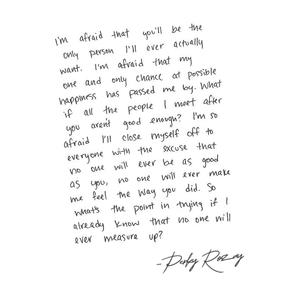 I'm afraid that you'll be the
only person I'll ever actually
want. I'm afraid that my
one and only chance at possible
happiness has passed me by. What
if all the people I meet after
you aren't good enough? I'm so
afraid I'll close myself off to
everyone with the excuse that
no one will ever be as good
as you, no one will ever make
me feel the way you did. So
what's the point in trying if I
already know that no one will
ever measure up?